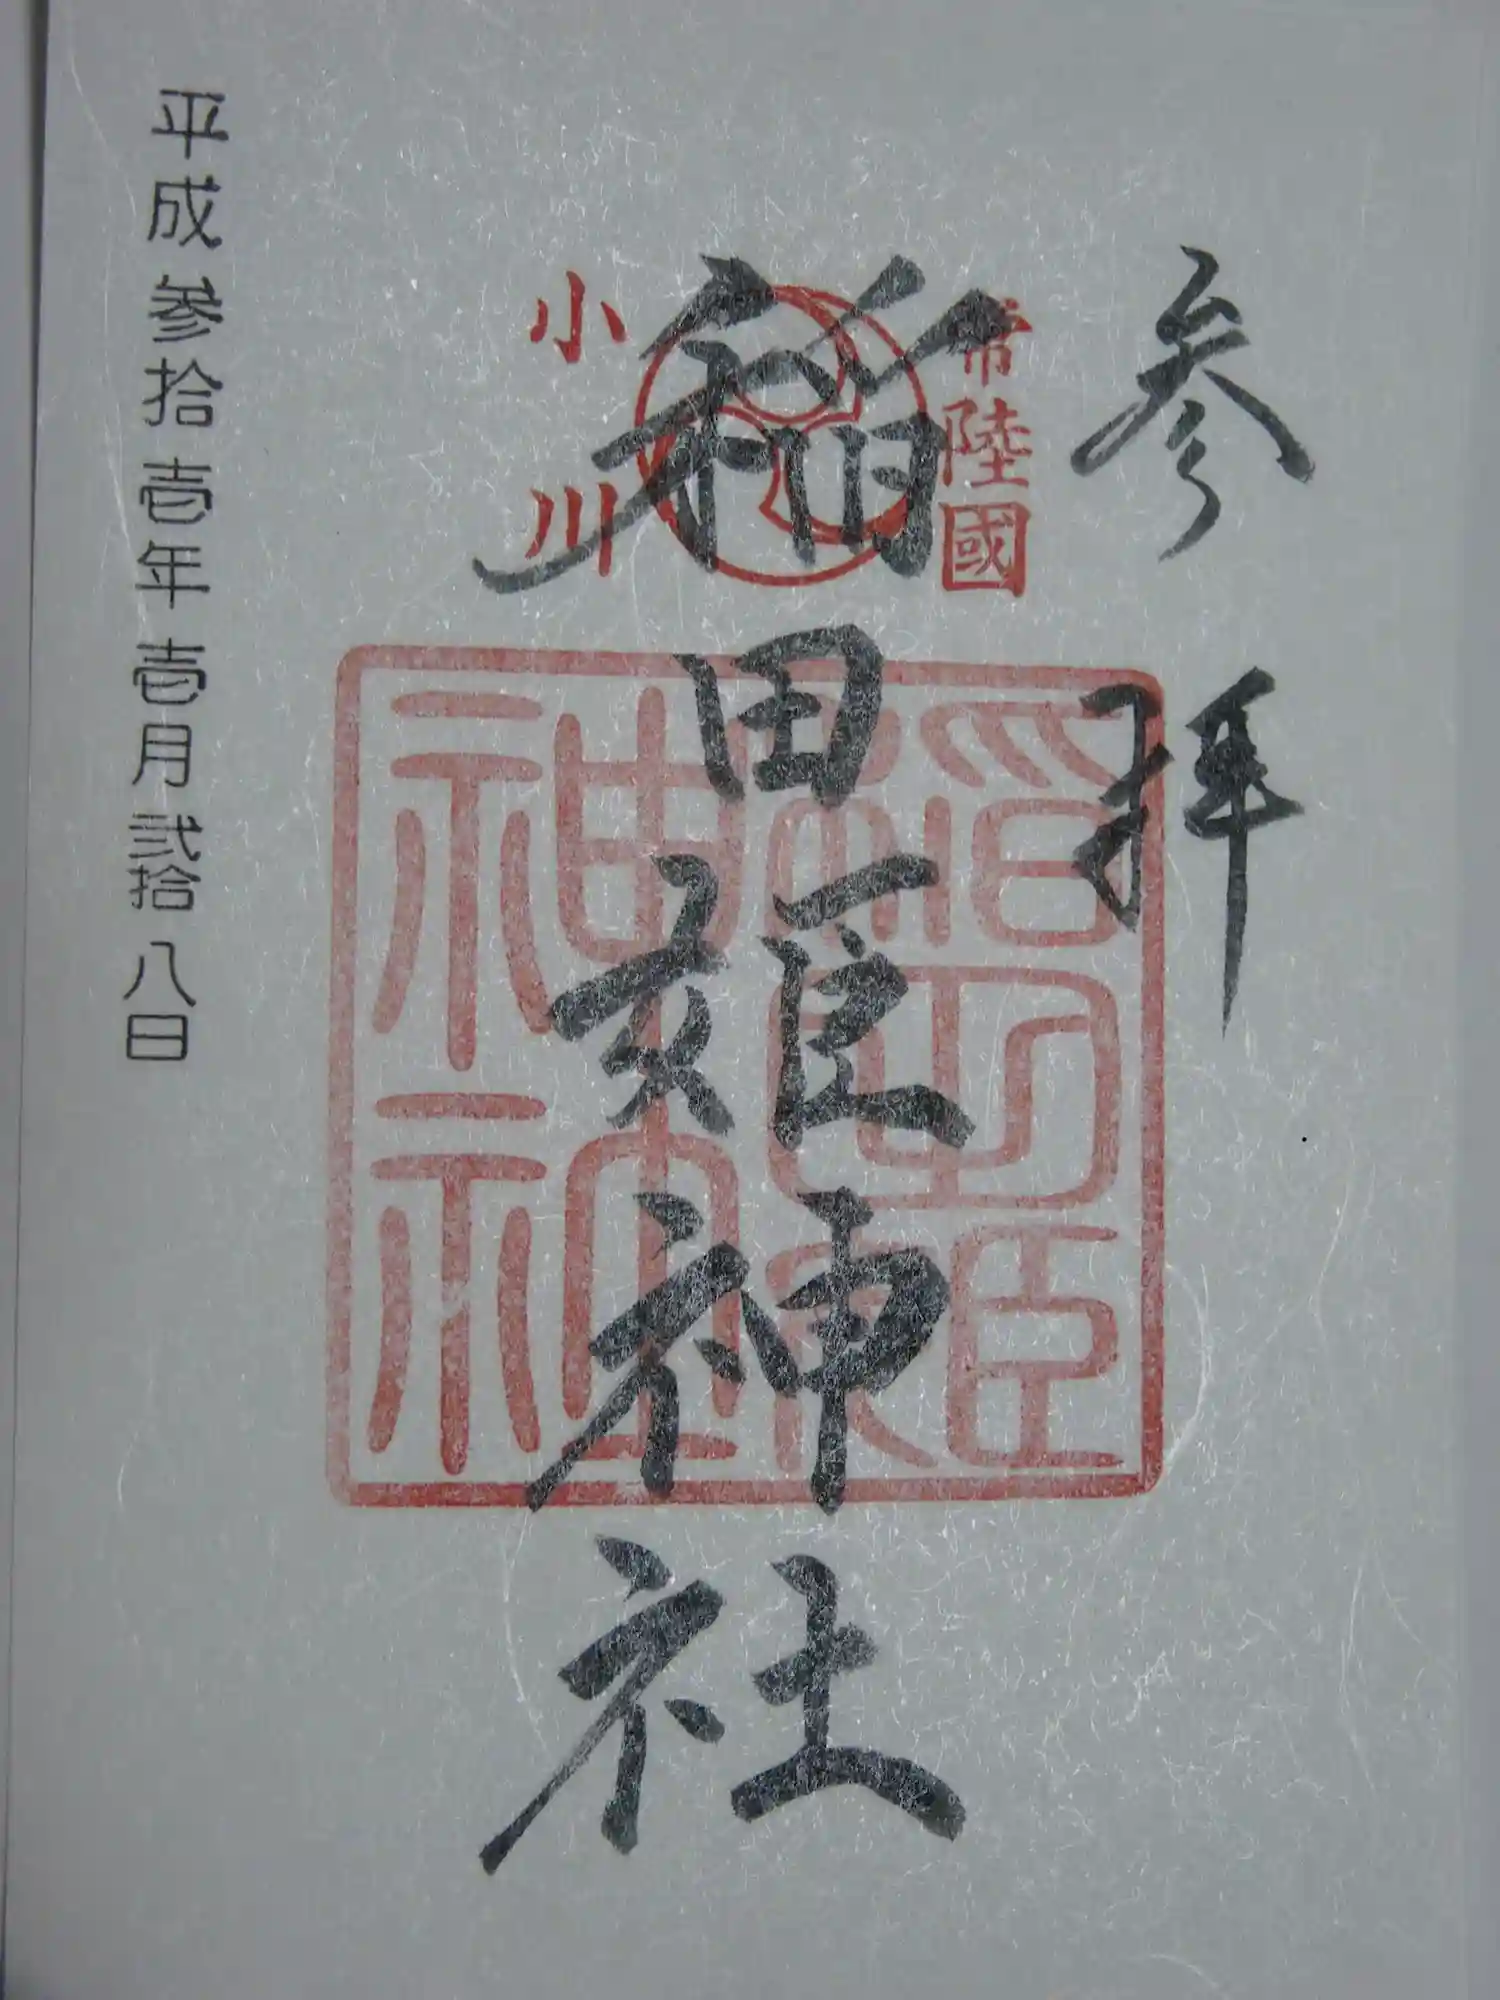 参拝
常陸國
稲田姫神社
小川
稲田姫神社神
平成参拾壱年壱月弐拾八日